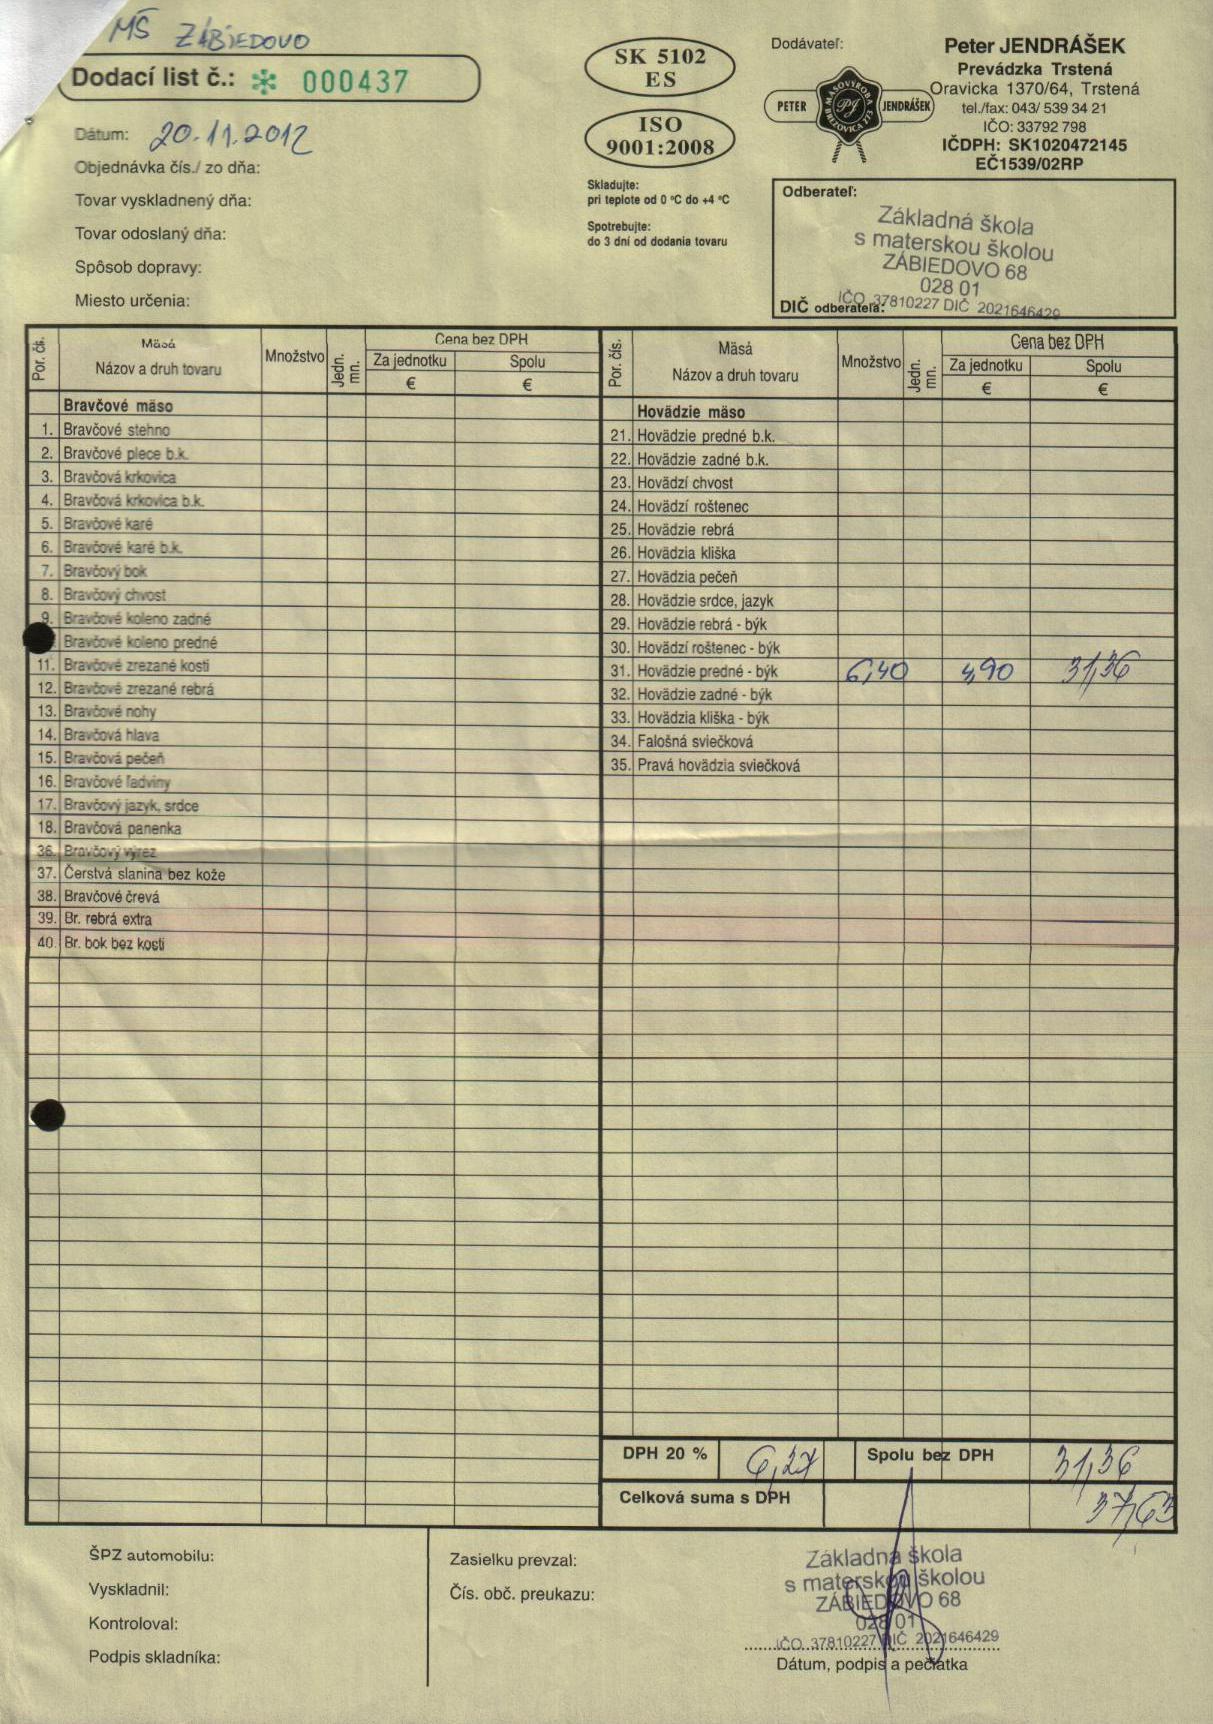 MŠ ZÁBIEDOVO
Dodací list č.: * 000437
Dátum: 20.11.2012
Objednávka čís./ zo dňa:
Tovar vyskladnený dňa:
Tovar odoslaný dňa:
Spôsob dopravy:
Miesto určenia:
SK 5102
ES
ISO
9001:2008
Skladujte:
pri teplote od 0 °C do +4 °C
Spotrebujte:
do 3 dní od dodania tovaru
Dodávateľ:
PETER JENDRÁŠEK
MÄSOVÝROBA
PJ
BREZOVICA 273
Peter JENDRÁŠEK
Prevádzka Trstená
Oravicka 1370/64, Trstená
tel./fax: 043/ 539 34 21
IČO: 33792 798
IČDPH: SK1020472145
EČ1539/02RP
Odberateľ:
Základná škola
s materskou školou
ZÁBIEDOVO 68
028 01
IČO 37810227 DIČ 2021646429
DIČ odberateľa:
Por. čís.
Mäsá
Názov a druh tovaru
Množstvo
Jedn. mn.
Cena bez DPH
Za jednotku
€
Spolu
€
Bravčové mäso
1. Bravčové stehno
2. Bravčové plece b.k.
3. Bravčová krkovica
4. Bravčová krkovica b.k.
5. Bravčové karé
6. Bravčové karé b.k.
7. Bravčový bok
8. Bravčový chvost
9. Bravčové koleno zadné
Bravčové koleno predné
11. Bravčové zrezané kosti
12. Bravčové zrezané rebrá
13. Bravčové nohy
14. Bravčová hlava
15. Bravčová pečeň
16. Bravčové ľadviny
17. Bravčový jazyk, srdce
18. Bravčová panenka
36. Bravčový výrez
37. Čerstvá slanina bez kože
38. Bravčové črevá
39. Br. rebrá extra
40. Br. bok bez kosti
Por. čís.
Mäsá
Názov a druh tovaru
Množstvo
Jedn. mn.
Cena bez DPH
Za jednotku
€
Spolu
€
Hovädzie mäso
21. Hovädzie predné b.k.
22. Hovädzie zadné b.k.
23. Hovädzí chvost
24. Hovädzí roštenec
25. Hovädzie rebrá
26. Hovädzia kliška
27. Hovädzia pečeň
28. Hovädzie srdce, jazyk
29. Hovädzie rebrá - býk
30. Hovädzí roštenec - býk
31. Hovädzie predné - býk 6,40 4,90 31,36
32. Hovädzie zadné - býk
33. Hovädzia kliška - býk
34. Falošná sviečková
35. Pravá hovädzia sviečková
DPH 20 % 6,27 Spolu bez DPH 31,36
Celková suma s DPH 37,63
ŠPZ automobilu:
Vyskladnil:
Kontroloval:
Podpis skladníka:
Zasielku prevzal:
Čís. obč. preukazu:
Základná škola
s materskou školou
ZÁBIEDOVO 68
028 01
IČO 37810227 DIČ 2021646429
Dátum, podpis a pečiatka